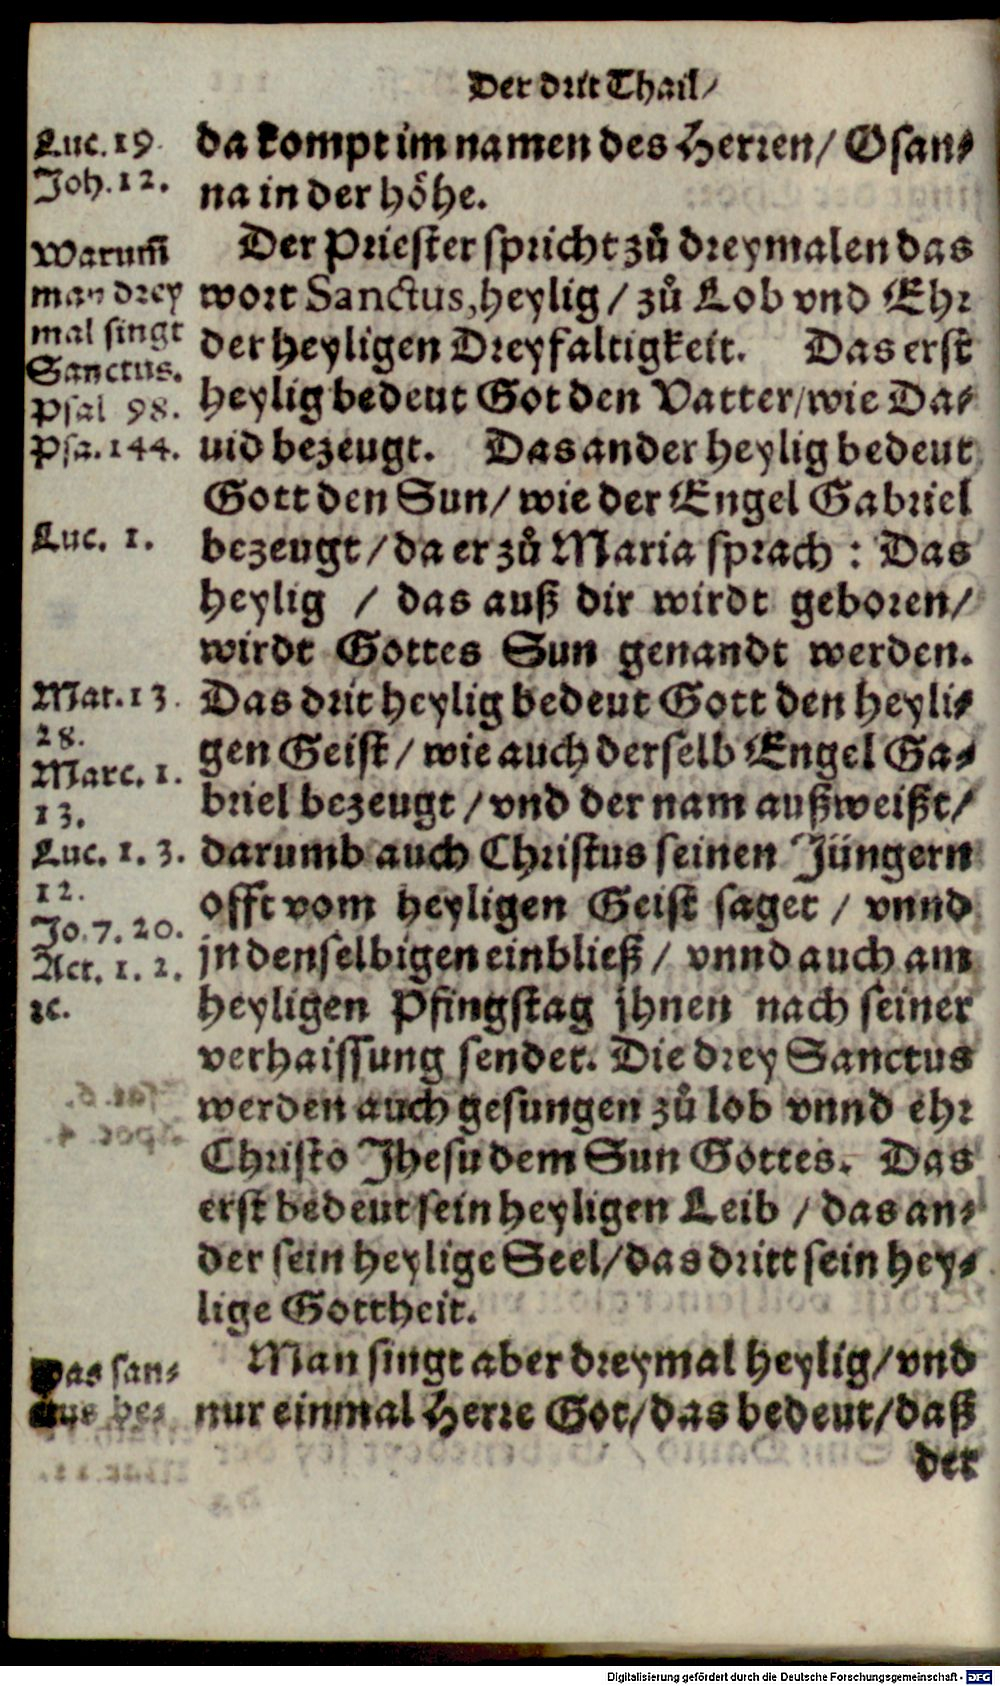 Der drit Thail/
Luc. 19.
Joh. 12.
da kompt im namen des Herren/ Osan⸗
na in der höhe.
Warum̃
man drey
mal singt
Sanctus.
Psal 98.
Psa. 144.
Der Priester spricht zů dreymalen das
wort Sanctus, heylig / zů Lob vnd Ehr
der heyligen Dreyfaltigkeit. Das erst
heylig bedeut Got den Vatter/wie Da⸗
uid bezeugt. Das ander heylig bedeut
Gott den Sun/ wie der Engel Gabriel
Luc. 1.
bezeugt /da er zů Maria sprach : Das
heylig / das auß dir wirdt geboren/
wirdt Gottes Sun genandt werden.
Mat. 13.
28.
Marc. 1.
13.
Luc. 1. 3.
12.
Jo. 7. 20.
Act. 1. 2.
ꝛc.
Das drit heylig bedeut Gott den heyli⸗
gen Geist / wie auch derselb Engel Ga⸗
briel bezeugt /vnd der nam außweißt/
darumb auch Christus seinen Jüngern
offt vom heyligen Geist saget / vnnd
jn denselbigen einbließ / vnnd auch am
heyligen Pfingstag jhnen nach seiner
verhaissung sendet. Die drey Sanctus
werden auch gesungen zů lob vnnd ehr
Christo Jhesu dem Sun Gottes. Das
erst bedeut sein heyligen Leib / das an⸗
der sein heylige Seel/das dritt sein hey⸗
lige Gottheit.
Das san⸗
ctus be⸗
Man singt aber dreymal heylig/vnd
nur einmal Herre Got/das bedeut/daß
der
Digitalisierung gefördert durch die Deutsche Forschungsgemeinschaft - DFG